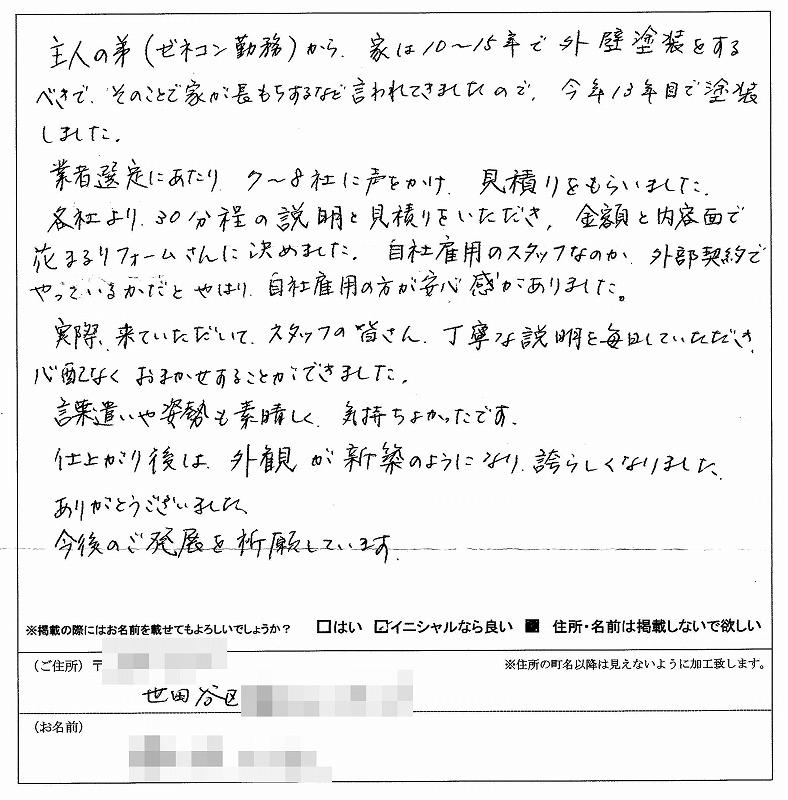 主人の弟(ゼネコン勤務)から、家は10〜15年で外壁塗装をする
べきで、そのことで家が長もちするなど言われてきましたので、今年13年目で塗装
しました。
業者選定にあたり、7〜8社に声をかけ、見積りをもらいました。
各社より、30分程の説明と見積りをいただき、金額と内容面で
花まるリフォームさんに決めました。自社雇用のスタッフなのか、外部契約で
やっているかだと、やはり、自社雇用の方が安心感がありました。
実際、来ていただいて、スタッフの皆さん、丁寧な説明を毎日していただき、
心配なくおまかせすることができました。
言葉遣いや姿勢も素晴しく、気持ちよかったです。
仕上がり後は、外観が新築のようになり、誇らしくなりました。
ありがとうございました。
今後のご発展を祈願しています。
※掲載の際にはお名前を載せてもよろしいでしょうか? □はい ☑イニシャルなら良い ■ 住所・名前は掲載しないで欲しい
(ご住所)〒 ※住所の町名以降は見えないように加工致します。
世田谷区
(お名前)